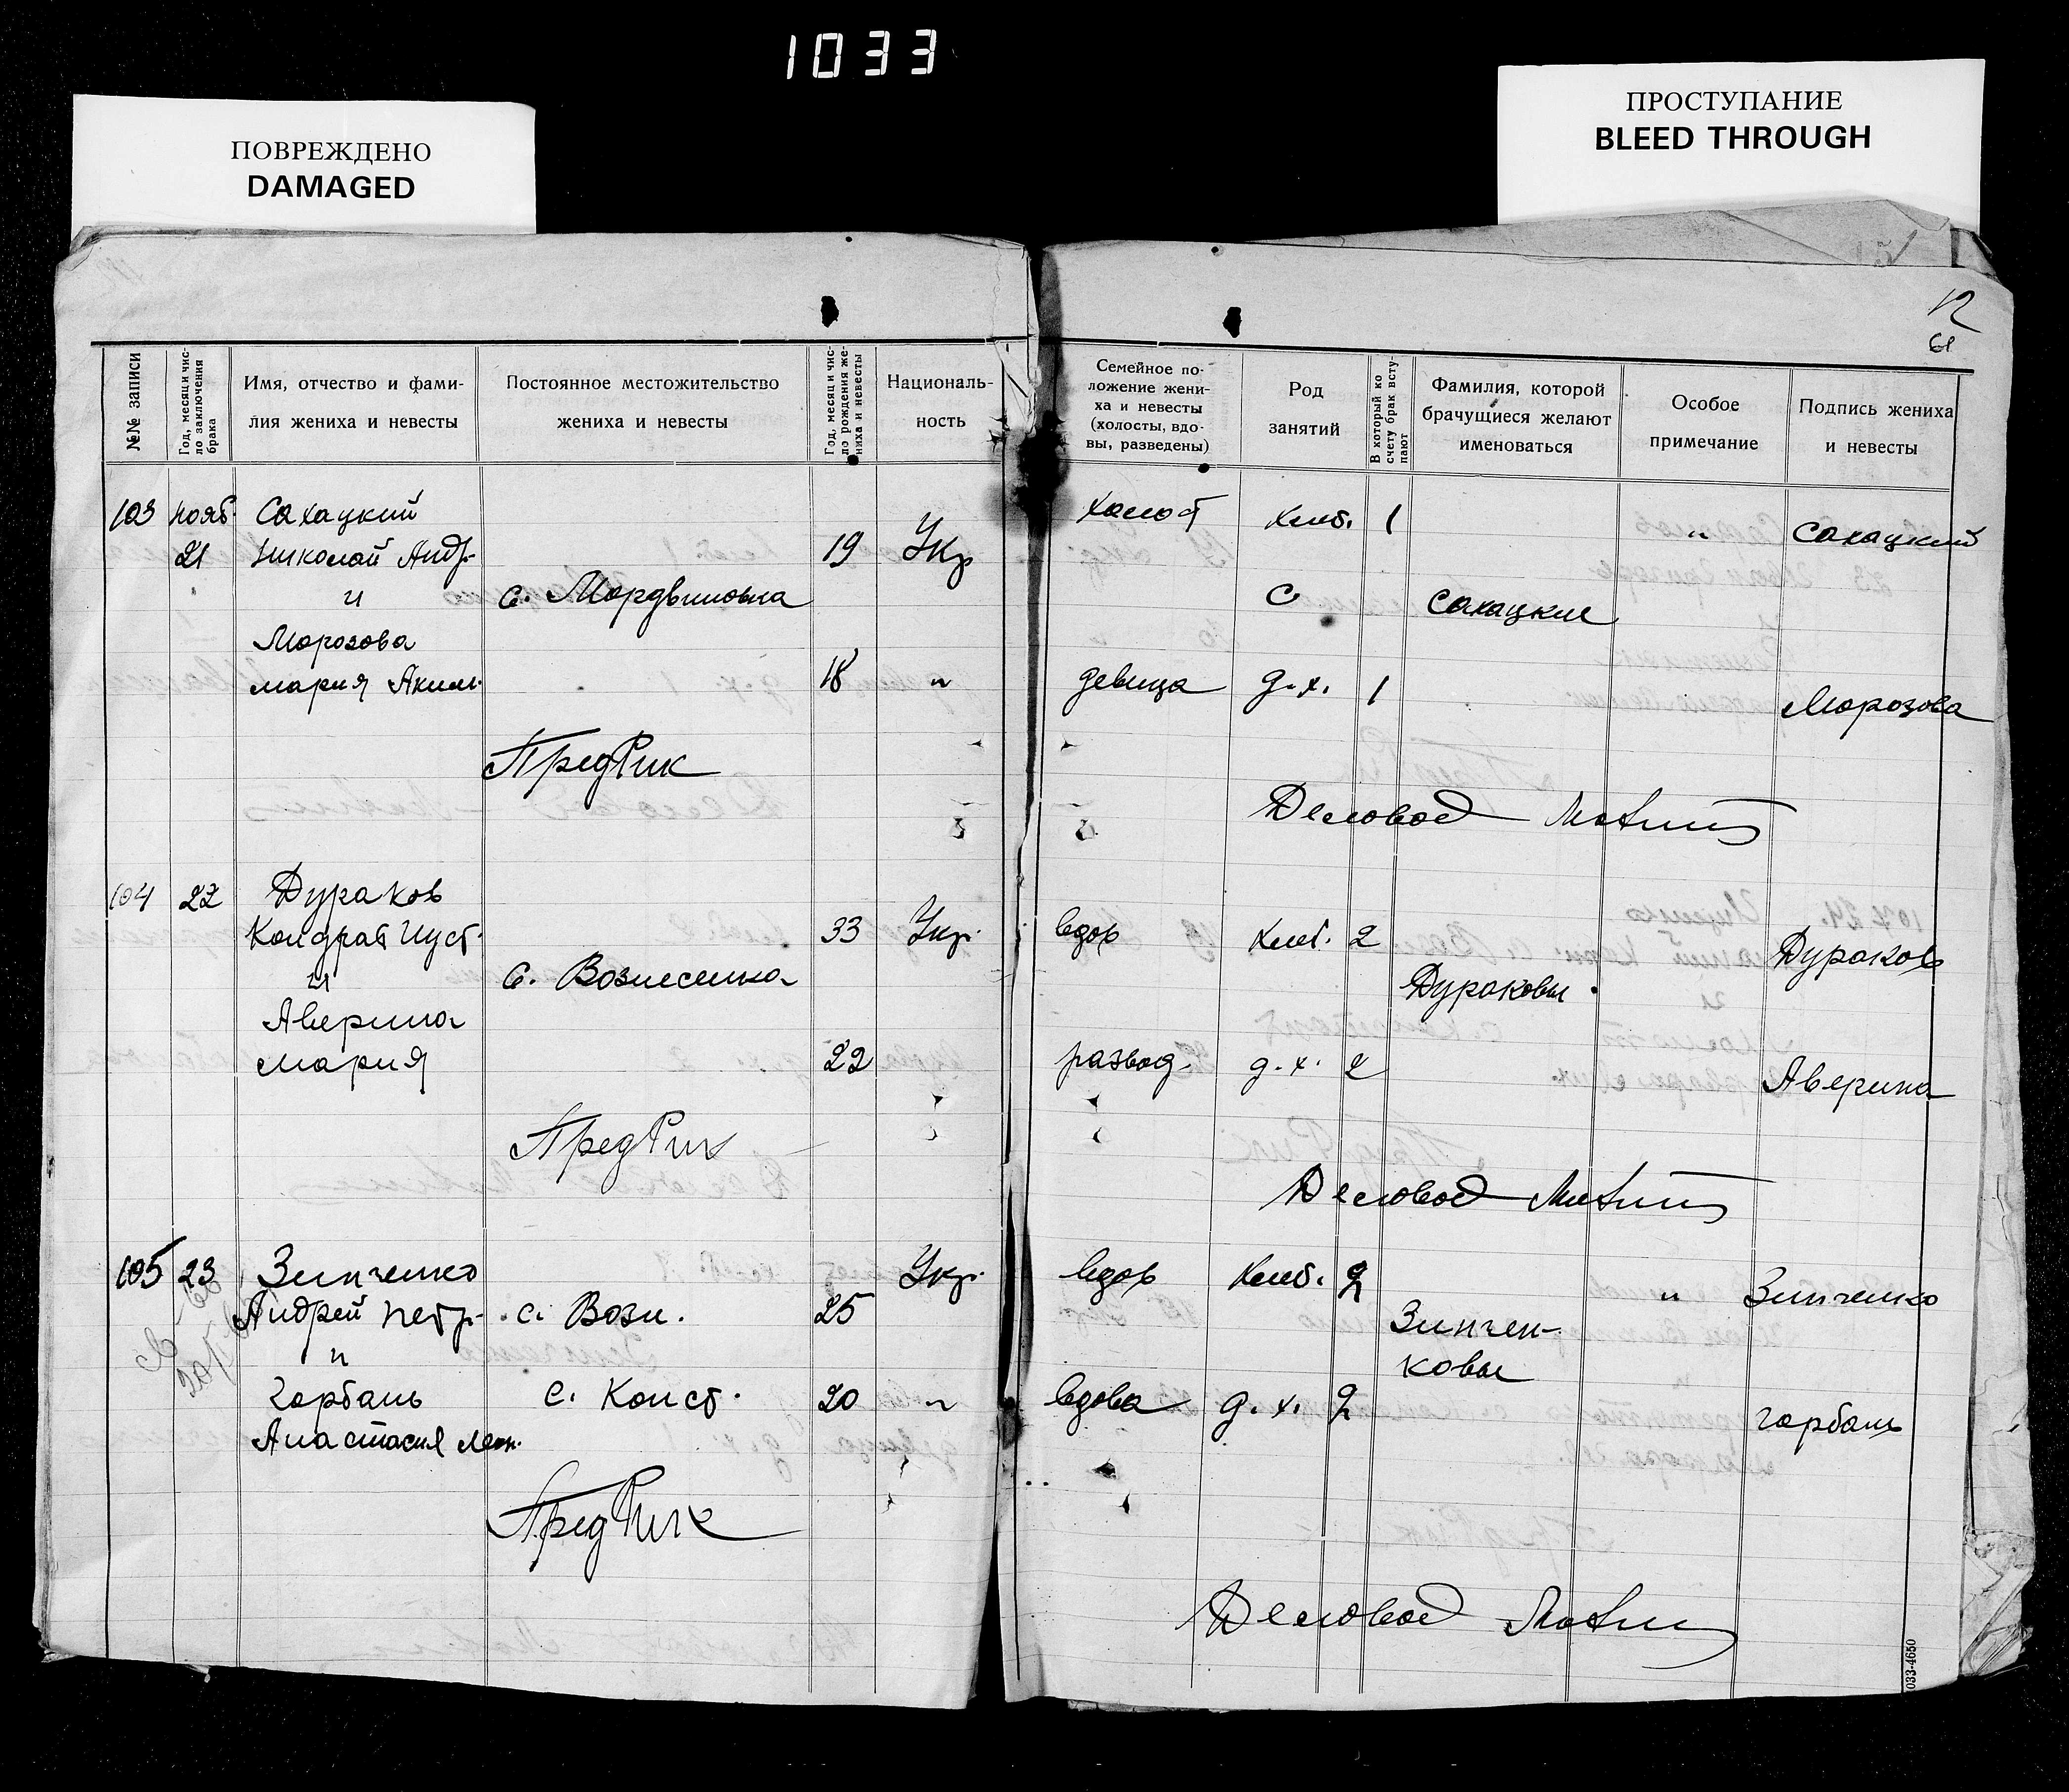 1033
ПОВРЕЖДЕНО
DAMAGED
ПРОСТУПАНИЕ
BLEED THROUGH
12
61
№№ записи
Год, месяц и чис-
ло заключения
брака
Имя, отчество и фами-
лия жениха и невесты
Постоянное местожительство
жениха и невесты
Год, месяц и чис-
ло рождения же-
ниха и невесты
Националь-
ность
Семейное по-
ложение жени-
ха и невесты
(холосты, вдо-
вы, разведены)
Род
занятий
В который ко
счету брак всту-
пают
Фамилия, которой
брачущиеся желают
именоваться
Особое
примечание
Подпись жениха
и невесты
103 нояб. Сахацкий холост хлеб. 1
21 Николай Андр. 19 Укр " Сахацкий
и с. Мордвиновка с Сахацкие
Морозова
Мария Аким. 18 " девица д.х. 1 Морозова
ПредРик
Деловод
104 22 Дураков
Кондрат Иуст. 33 Укр. вдов хлеб. 2 Дураков
и с. Вознесенка Дураковы
Аверина
Мария 22 развод. д.х. 2 Аверина
ПредРик
Деловод
105 23 Зинченко Укр. вдов хлеб. 2 " Зинченко
Андрей Петр. с. Возн. 25 Зинчен-
и ковы
Горбань с. Конст. 20 " вдова д.х. 2 Горбань
Анастасия
ПредРик
Деловод
033-4650